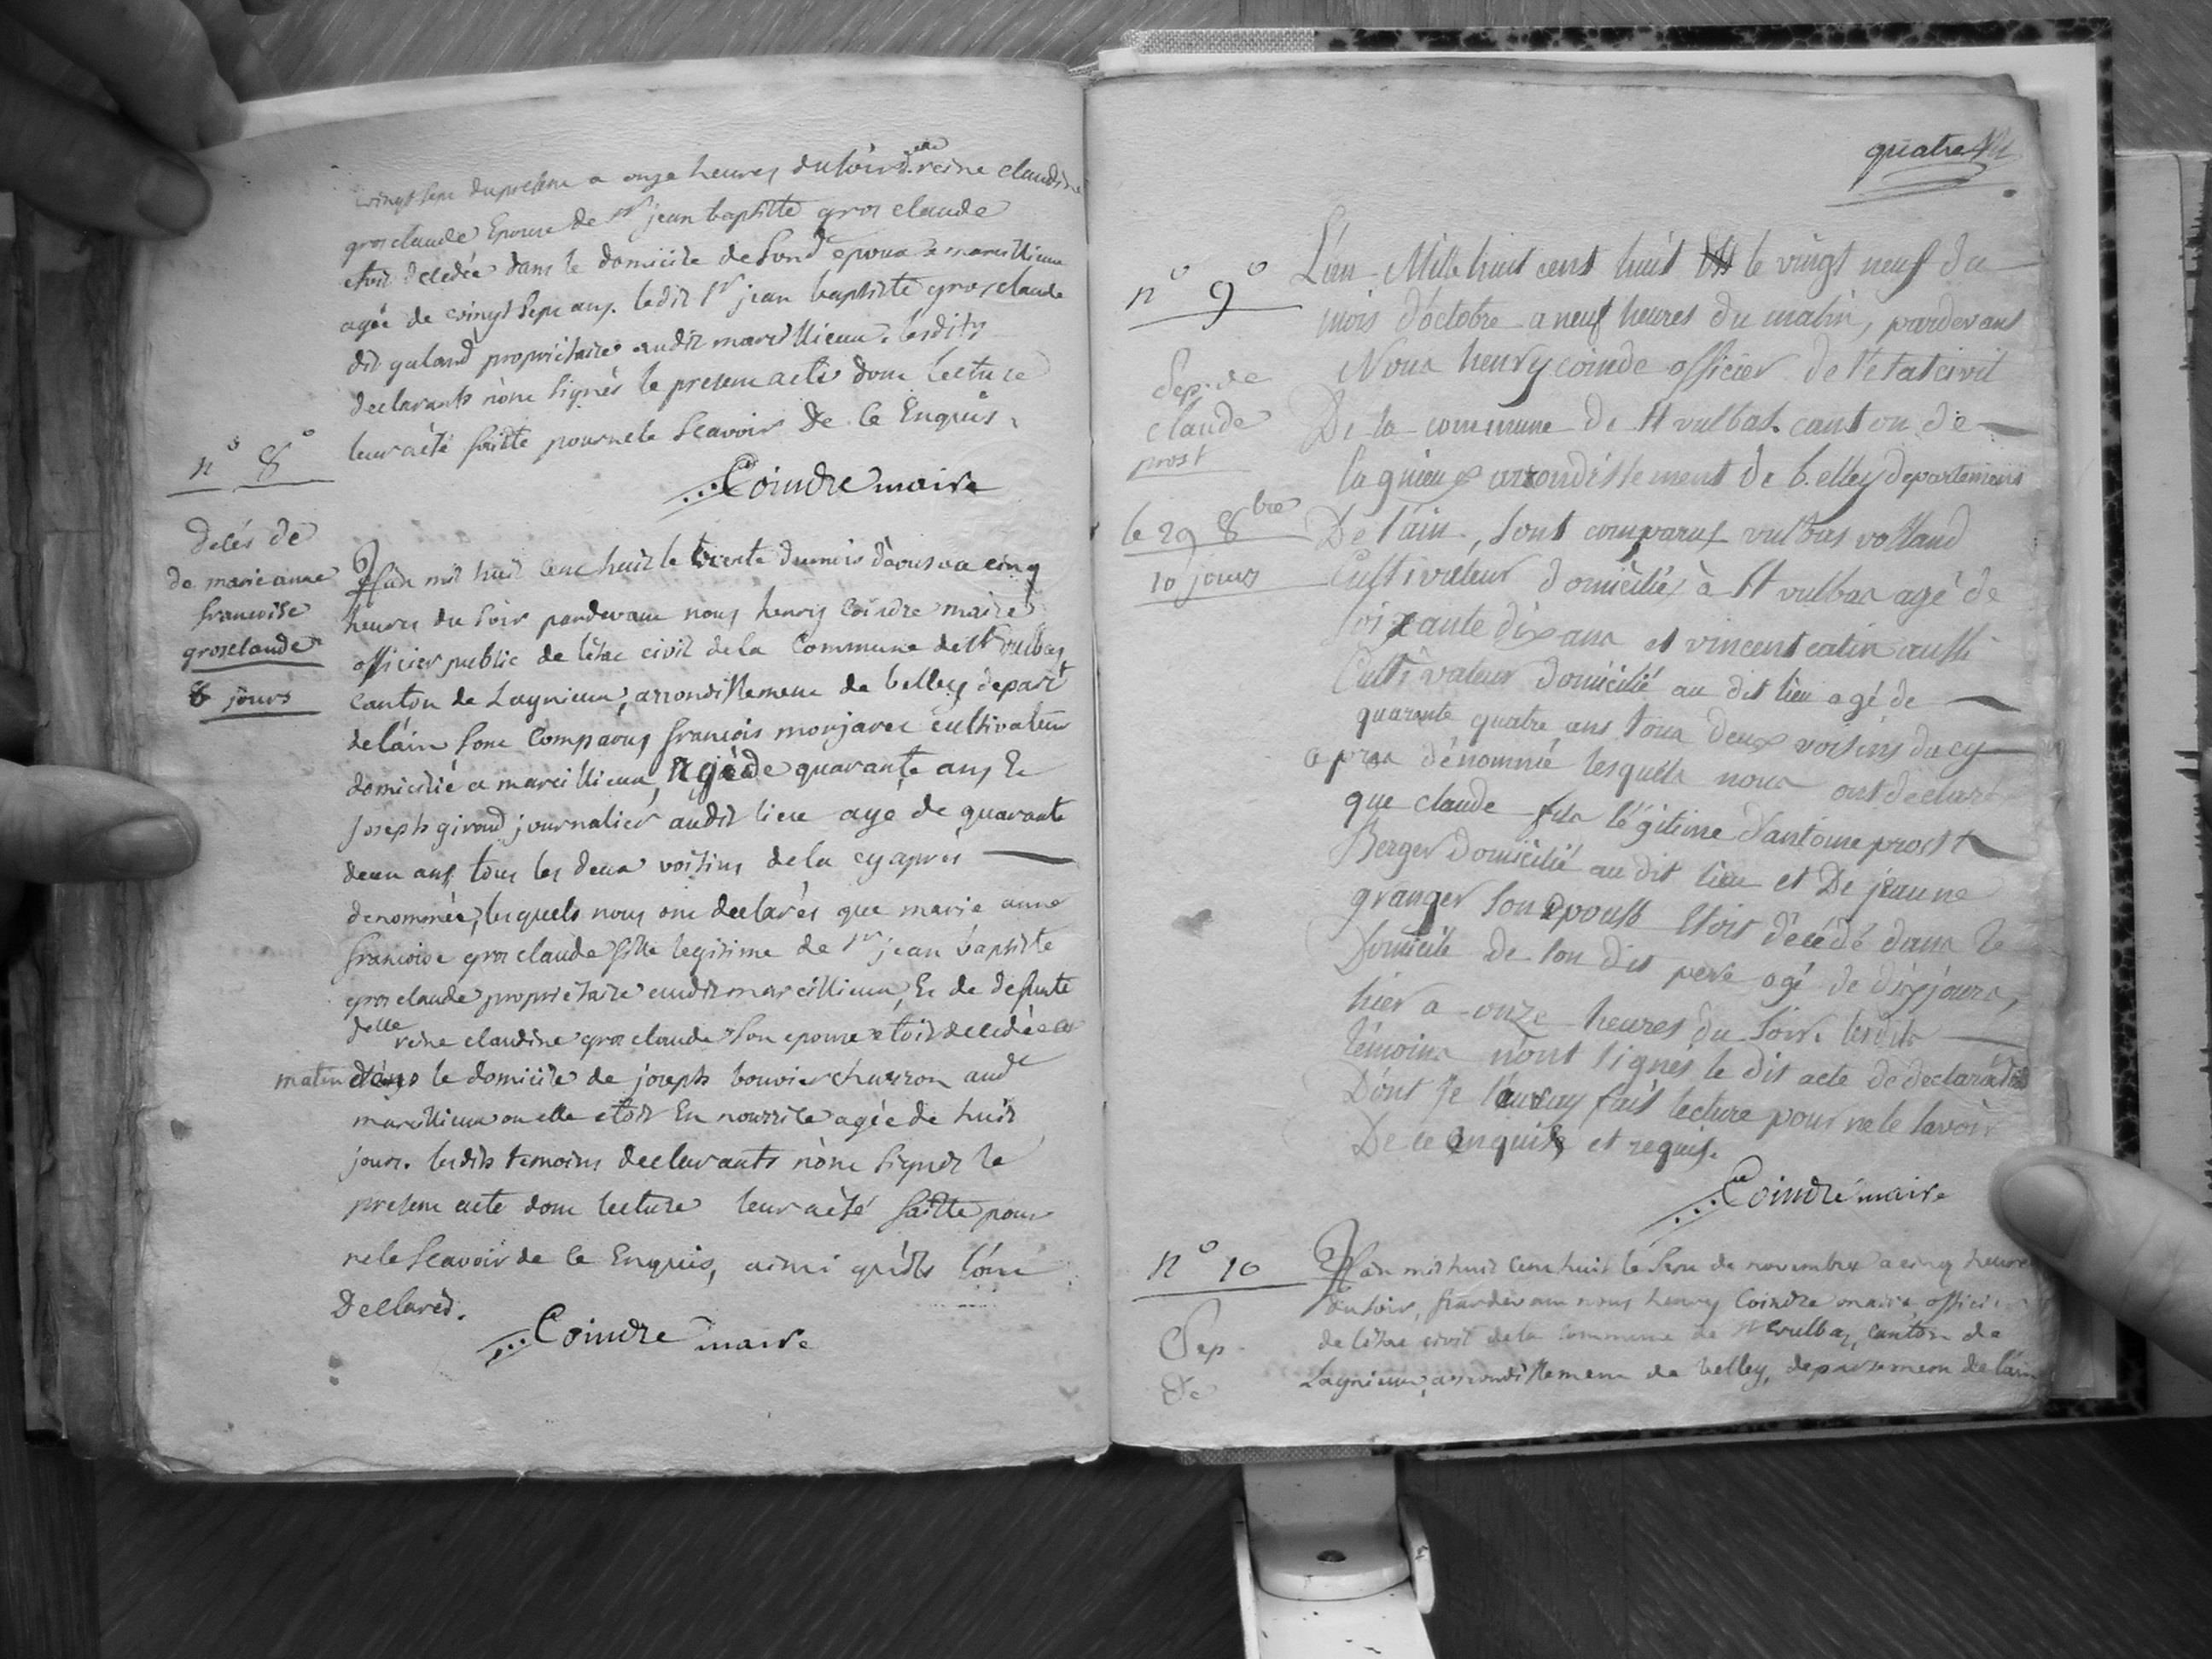 vingt sept du present a onze heures du soir d.elle reine claudine
gros claude Epouse de sr jean baptiste gros claude
etoit decedée dans le domicile de son d epoux a marcillieux
agée de vingt sept ans. ledit sr jean baptiste gros claude
dit galand propriétaire audit marcillieux. lesdits
declarants n'ont signés le present acte dont lecture
leur a été faitte pour ne le scavoir de ce Enquis.
Coindre maire
n° 8°
decés de
de marie anne
francoise
grosclaude
8 jours
L'an mil huit cent huit le trente du mois d'aoust a cinq
heures du soir pardevant nous henry Coindre maire
officier public de l'etat civil de la Commune de st vulbas
Canton de Lagnieux, arrondissement de belley depart
de l'ain sont Comparus francois monjavec cultivateur
domicilié a marcillieux, agé de quarante ans Et
joseph giroud journalier audit lieu age de quarante
deux ans tous les deux voisins de la cy apres
denommée, lesquels nous ont declarés que marie anne
francoise gros claude fille legitime de sr jean baptiste
gros claude propriétaire audit marcillieux, Et de defunte
delle reine claudine gros claude son epouse etoit decedée ce
matin dans le domicile de joseph bouvier charron aud
marcillieux ou elle etoit En nourrice agée de huit
jours. lesdits temoins declarants n'ont signés le
present acte dont lecture leur a été faitte pour
ne le scavoir de ce Enquis, ainsi qu'ils l'ont
Declarés.
Coindre maire
quatre
n° 9°
Dep. de
claude
prost
le 29 8bre
10 jours
L'an Mile huit cent huit le vingt neuf du
mois d'octobre a neuf heures du matin, pardevant
Nous henry coindre officier de l'etat civil
De la commune de st vulbas canton de
lagnieux arrondissement de belley departement
De l'ain, sont comparus vulbas volland
Cultivateur domicilié à st vulbas agé de
soixante dix ans et vincent catin aussi
Cultivateur domicilié au dit lieu agé de
quarante quatre ans tous deux voisins du cy
apres dénommé lesquels nous ont declaré
que claude fils légitime d'antoine prost
Berger domicilié au dit lieu et De jeanne
granger son Epouse etoit décédé dans le
Domicile de son dit pere agé de dix jours,
hier a onze heures du soir. lesdits
témoins n'ont signés le dit acte de declaration
Dont je leur ay fait lecture pour ne le savoir
De ce enquis et requis.
Coindre maire
n° 10
Dep.
de
L'an mil huit cent huit le sept de novembre a cinq heures
du soir, pardevant nous henry Coindre maire officier
de l'etat civil de la commune de st vulbas, Canton de
Lagnieux, arrondissement de belley, departement de l'ain